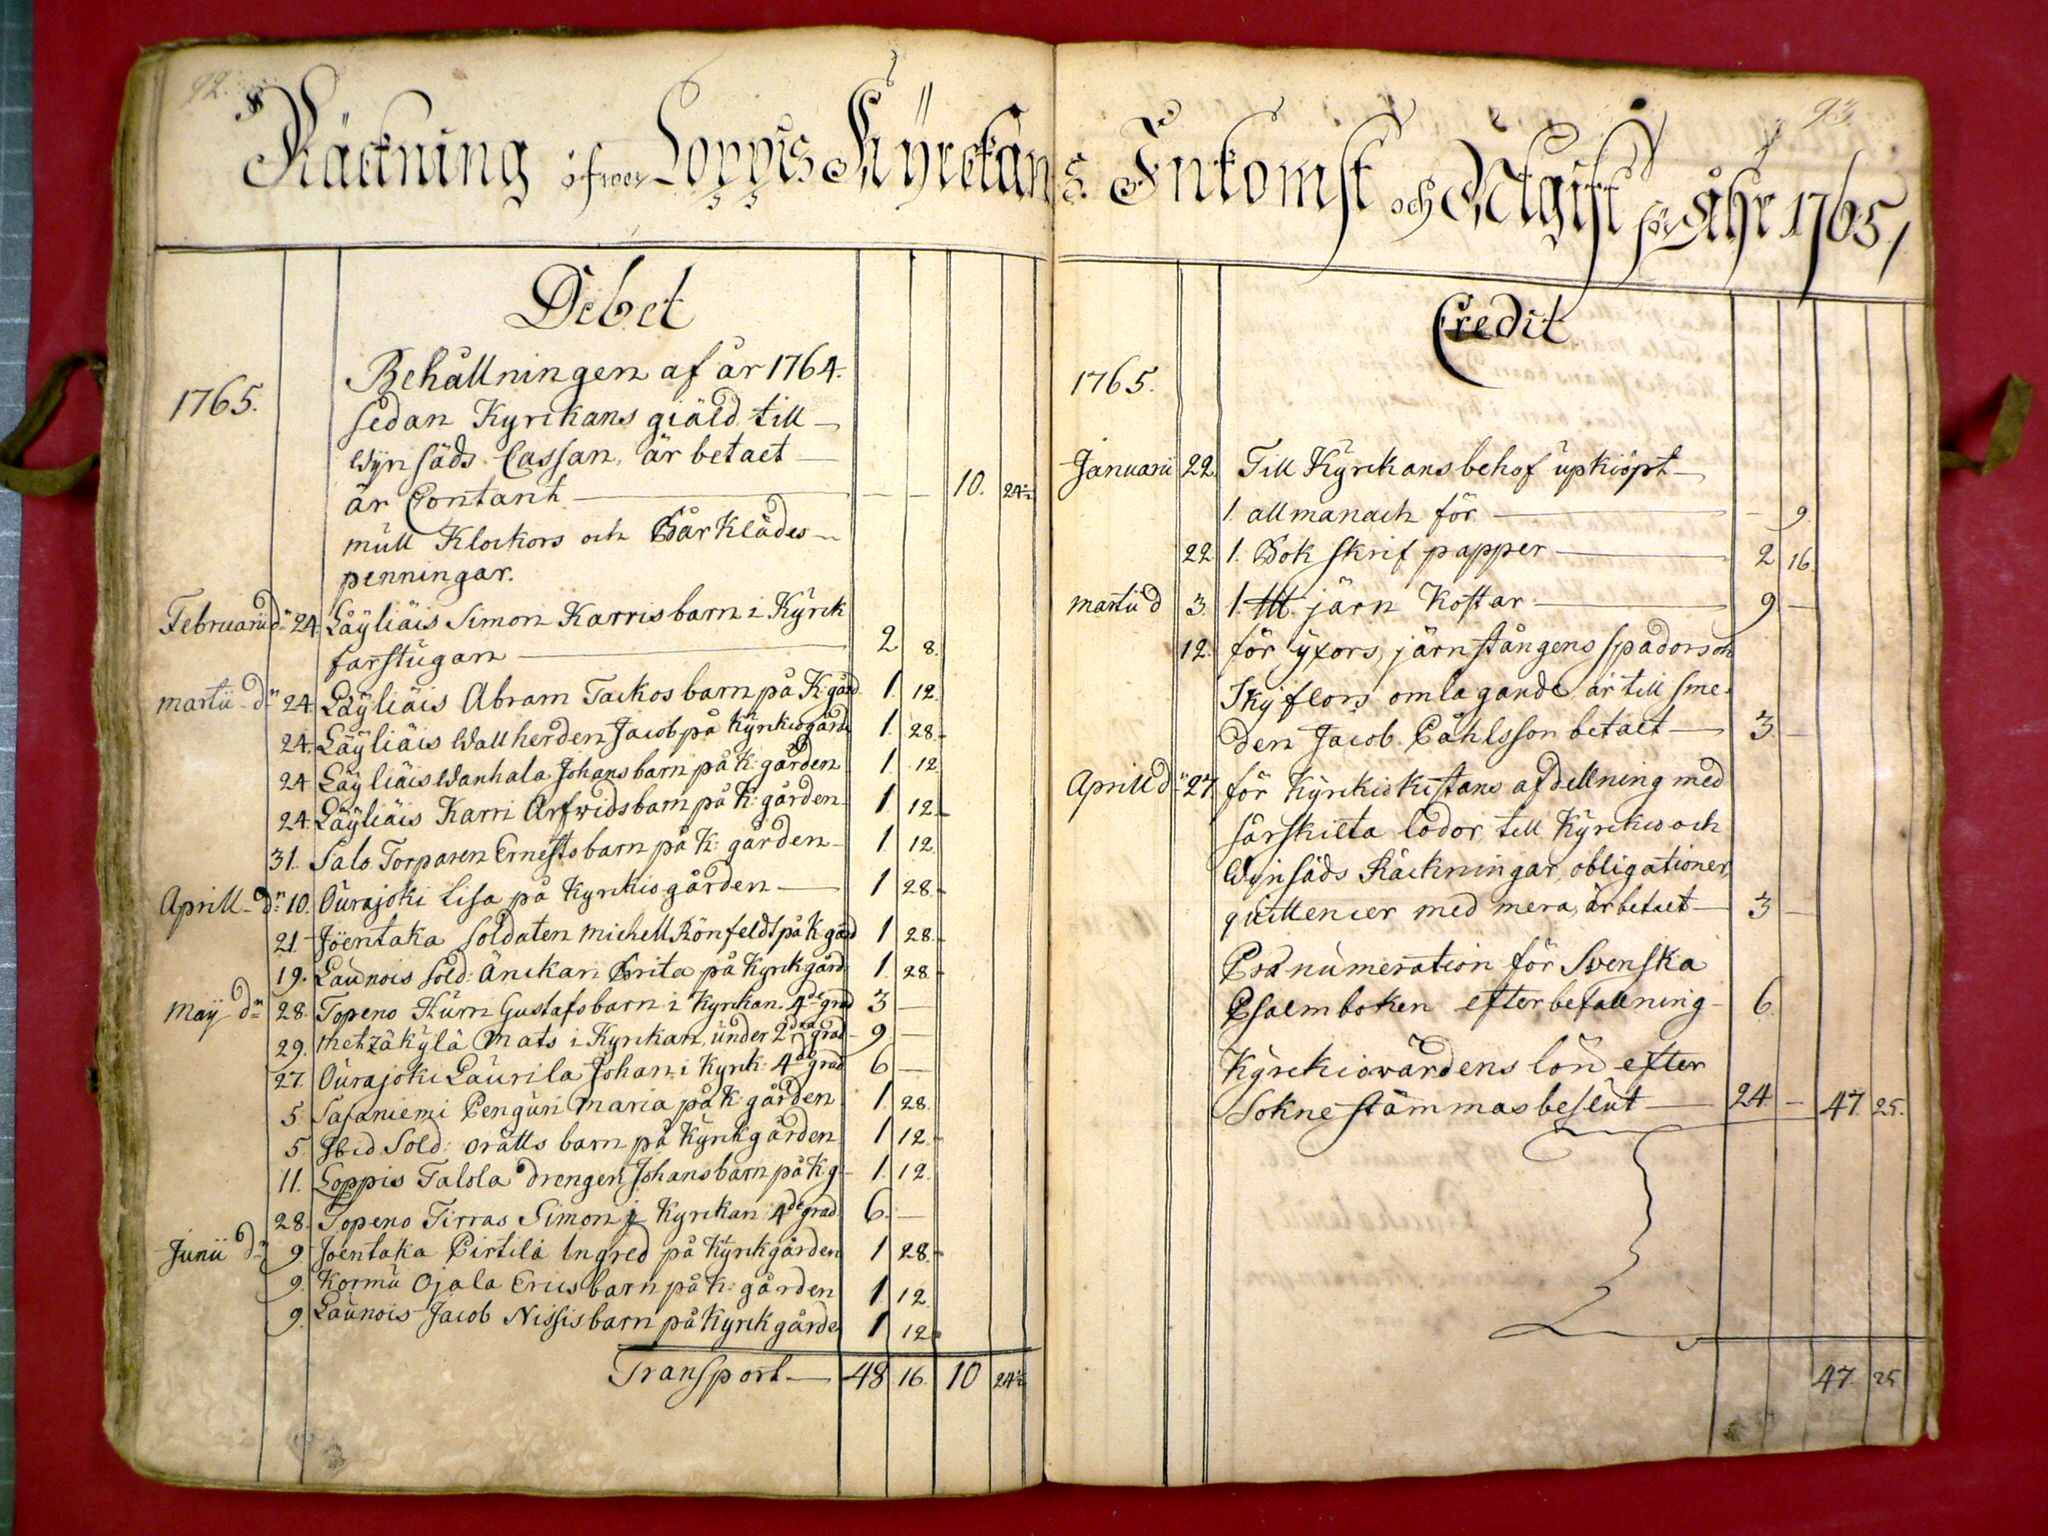 92.
Räckning öfwer Loppis Kyrckans Inkomst och Utgift för Åhr 1765,
93
Debet
1765. Behållningen af år 1764.
sedan Kyrckans giäld till
Wijnsäds Cassan, är betaet
är Contant — — 10. 24½
mull Klockors och Bårklädes
penningar.
Februarii dn 24. Läyliäis Simon Karris barn i Kyrck
farstugan 2 8.
martii dn 24. Läyliäis Abram Tackos barn på K: gård 1. 12.
24. Läyliäis Wallherden Jacob på Kyrckiogårde 1. 28.
24 Läyliäis Wanhala Johans barn på K: gården 1 12.
24. Läyliäis Karri Arfwids barn på K: gården 1. 12.
31. Salo Torparen Ernests barn på K: gården 1 12.
Aprill dn 10. Ourajoki Lisa på Kyrckiogården 1 28.
21 Jöentaka Soldaten Michell Rönfeldt på K: gård 1 28.
19. Launois Sold: Änckan Brita på Kyrckgård 1. 28.
Maÿ dn 28. Topeno Hurri Gustafs barn i Kyrckan. 4de grad 3 —
29. Metzäkylä Mats i Kyrckan, under 2dra grad 9 —
27. Ourajoki Laurila Johan i Kyrck: 4de grad 6 —
5. Sajaniemi Penguri Maria på K: gården 1. 28.
5. Ibid Sold: Orätts barn på Kyrckgården 1 12.
11. Loppis Talola drengen Johans barn på K: g: 1. 12.
28. Topeno Tirras Simon i Kyrckan 4de grad 6. —
Junii dn 9. Joentaka Pirtilä Ingred på Kyrckgården 1 28.
9. Kormu Ojala Erics barn på K: gården 1 12.
9. Launois Jacob Nissis barn på Kyrckgårde 1 12.
Transport 48 16. 10 24½
Credit
1765.
Januarii 22. Till Kyrckans behof upkiöpt
1. allmanach för — 9.
22 1. Bok skrif papper 2 16.
martii d 3. 1. järn Kostar 9 —
12. för yxors, järnstångens spadors och
skyflors omlagande är till sme-
den Jacob Påhlsson betaet 3 —
Aprill dn 27 för Kyrckiokistans afdellning med
särskilta lådor, till Kyrckio och
Wijnsäds Räckningar, obligationer,
quittencier med mera, är betaet 3 —
Prænumeration för Svenska
Psalmboken efter befallning 6.
Kyrckiowärdens lön efter
Sokne stämmas beslut 24 — 47. 25.
47. 25